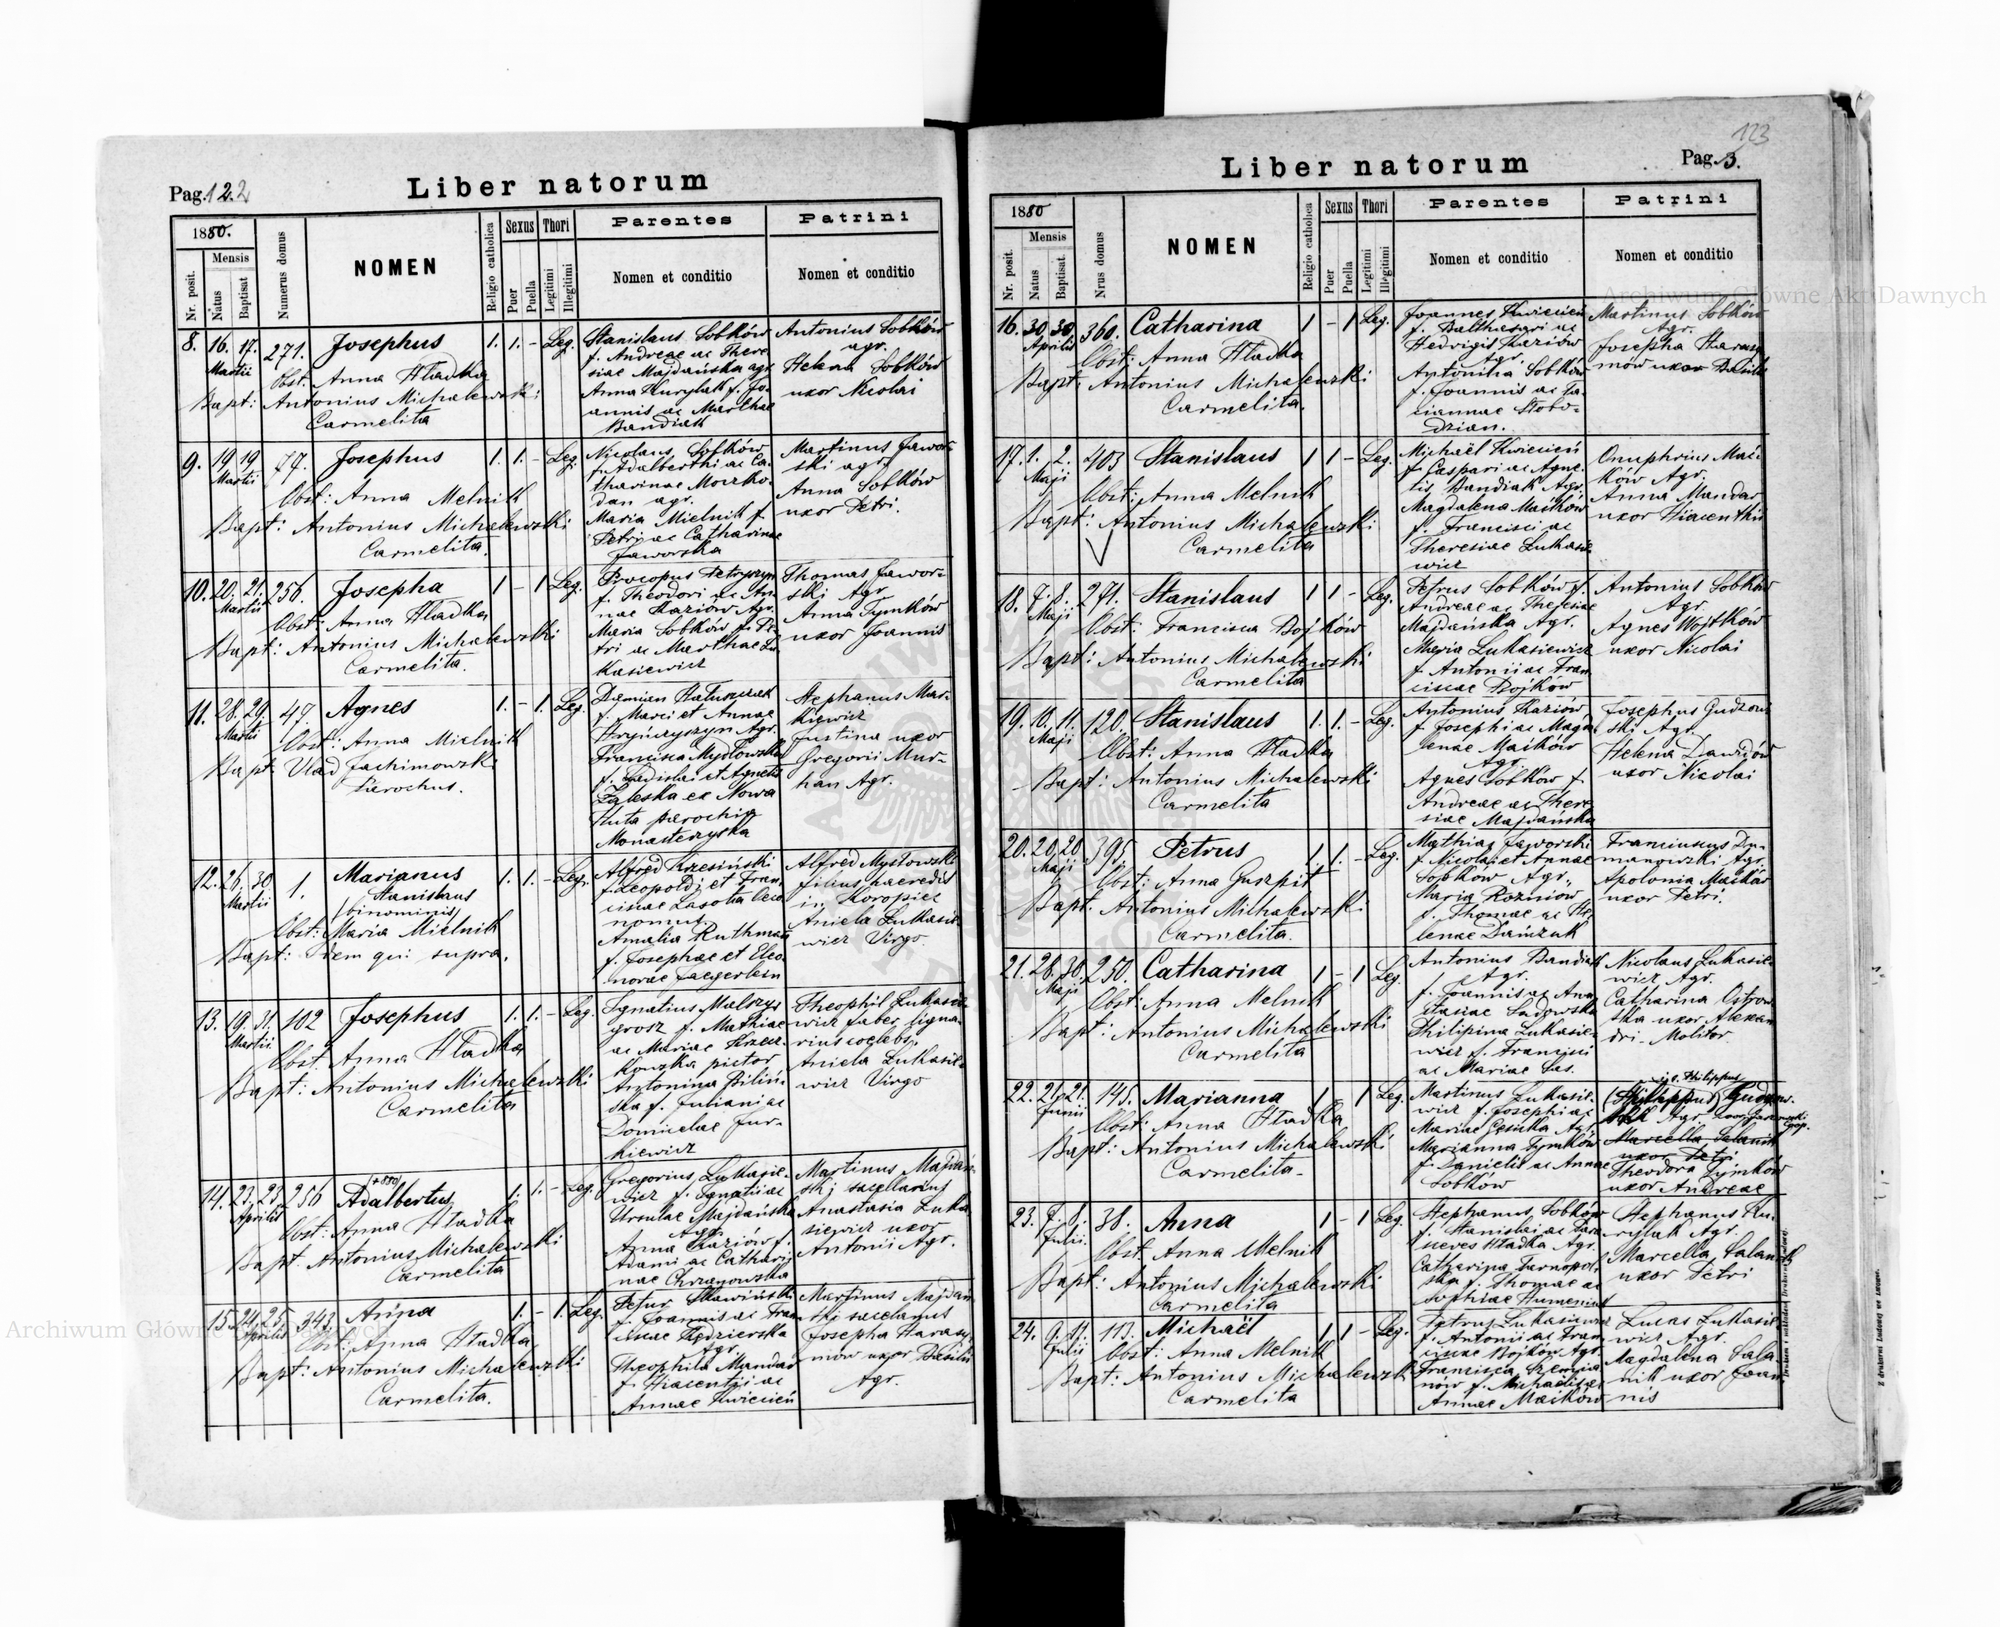 Pag. 122
Liber natorum
1880.
Mensis
Nr. posit.
Natus
Baptisat
Numerus domus
NOMEN
Religio catholica
Sexus
Puer
Puella
Thori
Legitimi
Illegitimi
Parentes
Nomen et conditio
Patrini
Nomen et conditio
8. 16. 17. Martii 271. Josephus 1. 1. - Leg.
Obst. Anna Hładka
Bapt: Antonius Michalewski
Carmelita
Stanislaus Sobków
f. Andreae ac There
siae Majdańska agr.
Anna Kurylak f. Jo-
annis ac Marthae
Bandiak
Antonius Sobków
agr.
Helena Sobków
uxor Nicolai
9. 19 19 Martii 77. Josephus 1. 1. - Leg.
Obst: Anna Melnik
Bapt: Antonius Michalewski
Carmelita.
Nicolaus Sobków
f. Adalberthi ac Ca-
tharinae Moczko-
dan agr.
Maria Mielnik f.
Petri ac Catharinae
Jaworska
Martinus Jawor-
ski agr.
Anna Sobków
uxor Petri.
10. 20. 21. Martii 256. Josepha 1 - 1 Leg.
Obst: Anna Hładka
Bapt: Antonius Michalewski
Carmelita.
Procopus Petryszyn
f. Theodori ac An-
nae Kaziów Agr.
Maria Sobków f. Pe-
tri ac Marthae Lu-
kasiewicz
Thomas Jawor-
ski Agr
Anna Tymków
uxor Joannis
11. 28. 29. Martii 47. Agnes 1. - 1. Leg.
Obst: Anna Mielnik
Bapt. Vlad Jachimowski
Parochus.
Damian
f. Marci et Annae
Agr.
Francisca Mydłowska
f. Ladislai et Agnetis
Zaleska ex Nowa
Huta parochia
Monasterzyska
Stephanus Mar-
kiewicz
Justina uxor
Gregorii Mur-
han Agr.
12. 26. 30. Martii 1. Marianus 1. 1. - Leg.
Stanislaus
(binominis)
Obst: Maria Mielnik
Bapt: Idem qui supra.
Alfred Krzesiński
f. Leopoldi et Fran-
ciscae Lasota Oeco
nomus
Amalia Ruthman
f. Josephae et Eleo
norae Jaegerlein
Alfred Mysłowski
filius haeredis
in Koropiec
Aniela Lukasie-
wicz Virgo
13. 19. 31. Martii 102 Josephus 1. 1. - Leg.
Obst. Anna Hładka
Bapt: Antonius Michalewski
Carmelita
Ignatius Malszy
grosz f. Mathiae
ac Mariae
pictor
Antonina Biliń-
ska f. Juliani ac
Domicelae Jur-
kiewicz
Theophil Lukasie
wicz faber ligna-
rius coelebs.
Aniela Lukasie-
wicz Virgo
14. 23. 23. Aprilis 256 Adalbertus 1. 1. - Leg.
Obst: Anna Hładka
Bapt. Antonius Michalewski
Carmelita
Gregorius Lukasie-
wicz f. Ignatii ac
Ursulae Majdańska
Agr.
Anna Kaziów f.
Adami ac Cathari
nae Chrzanowska
Martinus Majdań-
ski sacellanus
Anastasia Luka
siewicz uxor
Antonii Agr.
15. 24. 25. Aprilis 343. Anna 1. - 1. Leg.
Obst: Anna Hładka
Bapt: Antonius Michalewski
Carmelita.
Petrus Sławiński
f. Joannis ac Fran
ciscae Kędzierska
Agr.
Theophila Mandar
f. Hiacentii ac
Annae Kwiecień
Martinus Majdań
ski sacelanus
Josepha Haras-
mów uxor Basilii
Agr.
123
Liber natorum
Pag. 3.
1880
Mensis
Nr. posit.
Natus
Baptisat.
Nrus domus
NOMEN
Religio catholica
Sexus
Puer
Puella
Thori
Legitimi
Illegitimi
Parentes
Nomen et conditio
Patrini
Nomen et conditio
16. 30. 30. Aprilis 360. Catharina 1 - 1 Leg.
Obst: Anna Hładka
Bapt: Antonius Michalewski
Carmelita.
Joannes Kwiecień
f. Balthasari ac
Hedvigis Kaziów
Agr.
Antonina Sobków
f. Joannis ac Ta-
ciannae Słobo-
dzian.
Martinus Sobków
Agr.
Josepha Haras
mów uxor Basilii
17. 1. 2. Maji 403 Stanislaus 1 1 - Leg.
Obst: Anna Melnik
Bapt: Antonius Michalewski
Carmelita
Michaël Kwiecień
f. Caspari ac Agne-
tis Bandiak Agr.
Magdalena Maćków
f. Francisci ac
Theresiae Lukasie
wicz
Onuphrius Mać-
ków Agr.
Anna Mandar
uxor Hiacenthii
18. 7. 8. Maji 271. Stanislaus 1 1 - Leg.
Obst: Francisca Bojków
Bapt: Antonius Michalewski
Carmelita
Petrus Sobków f.
Andreae ac Thesiae
Majdańska Agr.
Maria Lukasiewicz
f. Antonii ac Fran
ciscae Bojków
Antonius Sobków
Agr.
Agnes Wojtków
uxor Nicolai
19. 10. 11. Maji 120. Stanislaus 1. 1. - Leg.
Obst: Anna Hładka
Bapt: Antonius Michalewski
Carmelita
Antonius Kaziów
f. Josephi ac Magda
lenae Maćków
Agr.
Agnes Sobków f.
Andreae ac There
siae Majdańska
Josephus Gudzow
ski Agr.
Helena Dawidów
uxor Nicolai
20. 20. 20. Maji 395. Petrus 1. 1. - Leg.
Obst: Anna Guszpit
Bapt. Antonius Michalewski
Carmelita.
Mathias Jaworski
f. Nicolai et Annae
Sobków Agr.
Maria Roziniów
f. Thomae ac He
lenae Dańczuk
Franciscus Du-
manowski Agr.
Apolonia Maćków
uxor Petri.
21. 28. 30. Maji 250. Catharina 1 - 1 Leg.
Obst: Anna Melnik
Bapt: Antonius Michalewski
Carmelita
Antonius Bandiak
Agr.
f. Joannis ac Ana
stasiae Sadowska
Philipina Lukasie-
wicz f. Francisci
ac Mariae Las.
Nicolaus Lukasie-
wicz Agr.
Catharina Ostrow
ska uxor Alexan
dri - Molitor
22. 21. 21. Junii 145. Marianna 1 - 1 Leg.
Obst: Anna Hładka
Bapt: Antonius Michalewski
Carmelita -
Martinus Lukasie-
wicz f. Josephi ac
Mariae Agr.
Marianna Tymków
f. Danielis ac Annae
Sobków
Philippus
Agr.
Marcella Salanik
uxor Petri
Theodora Tymków
uxor Andreae
23. 7. 8. Julii 38. Anna 1 - 1 Leg.
Obst. Anna Melnik
Bapt: Antonius Michalewski
Carmelita
Stephanus Sobków
f. Stanislai ac Para
sceves Hładka Agr.
Catharina Tarnopol-
ska f. Thomae ac
Sophiae Humeniuk
Stephanus Ku-
rylak Agr.
Marcella Salanik
uxor Petri
24. 9. 11. Julii 113. Michaël 1 1 - Leg.
Obst: Anna Melnik
Bapt: Antonius Michalewski
Carmelita
Petrus Lukasiewicz
f. Antonii ac Fran
ciscae Bojków Agr.
Francisca
nów f. Michaëlis ac
Annae Maćków
Lucas Lukasie-
wicz Agr.
Magdalena Sala-
nik uxor Joan
nis
Z drukarni Ludowej we Lwowie.
Archiwum Główne Akt Dawnych
Archiwum Główne Akt Dawnych